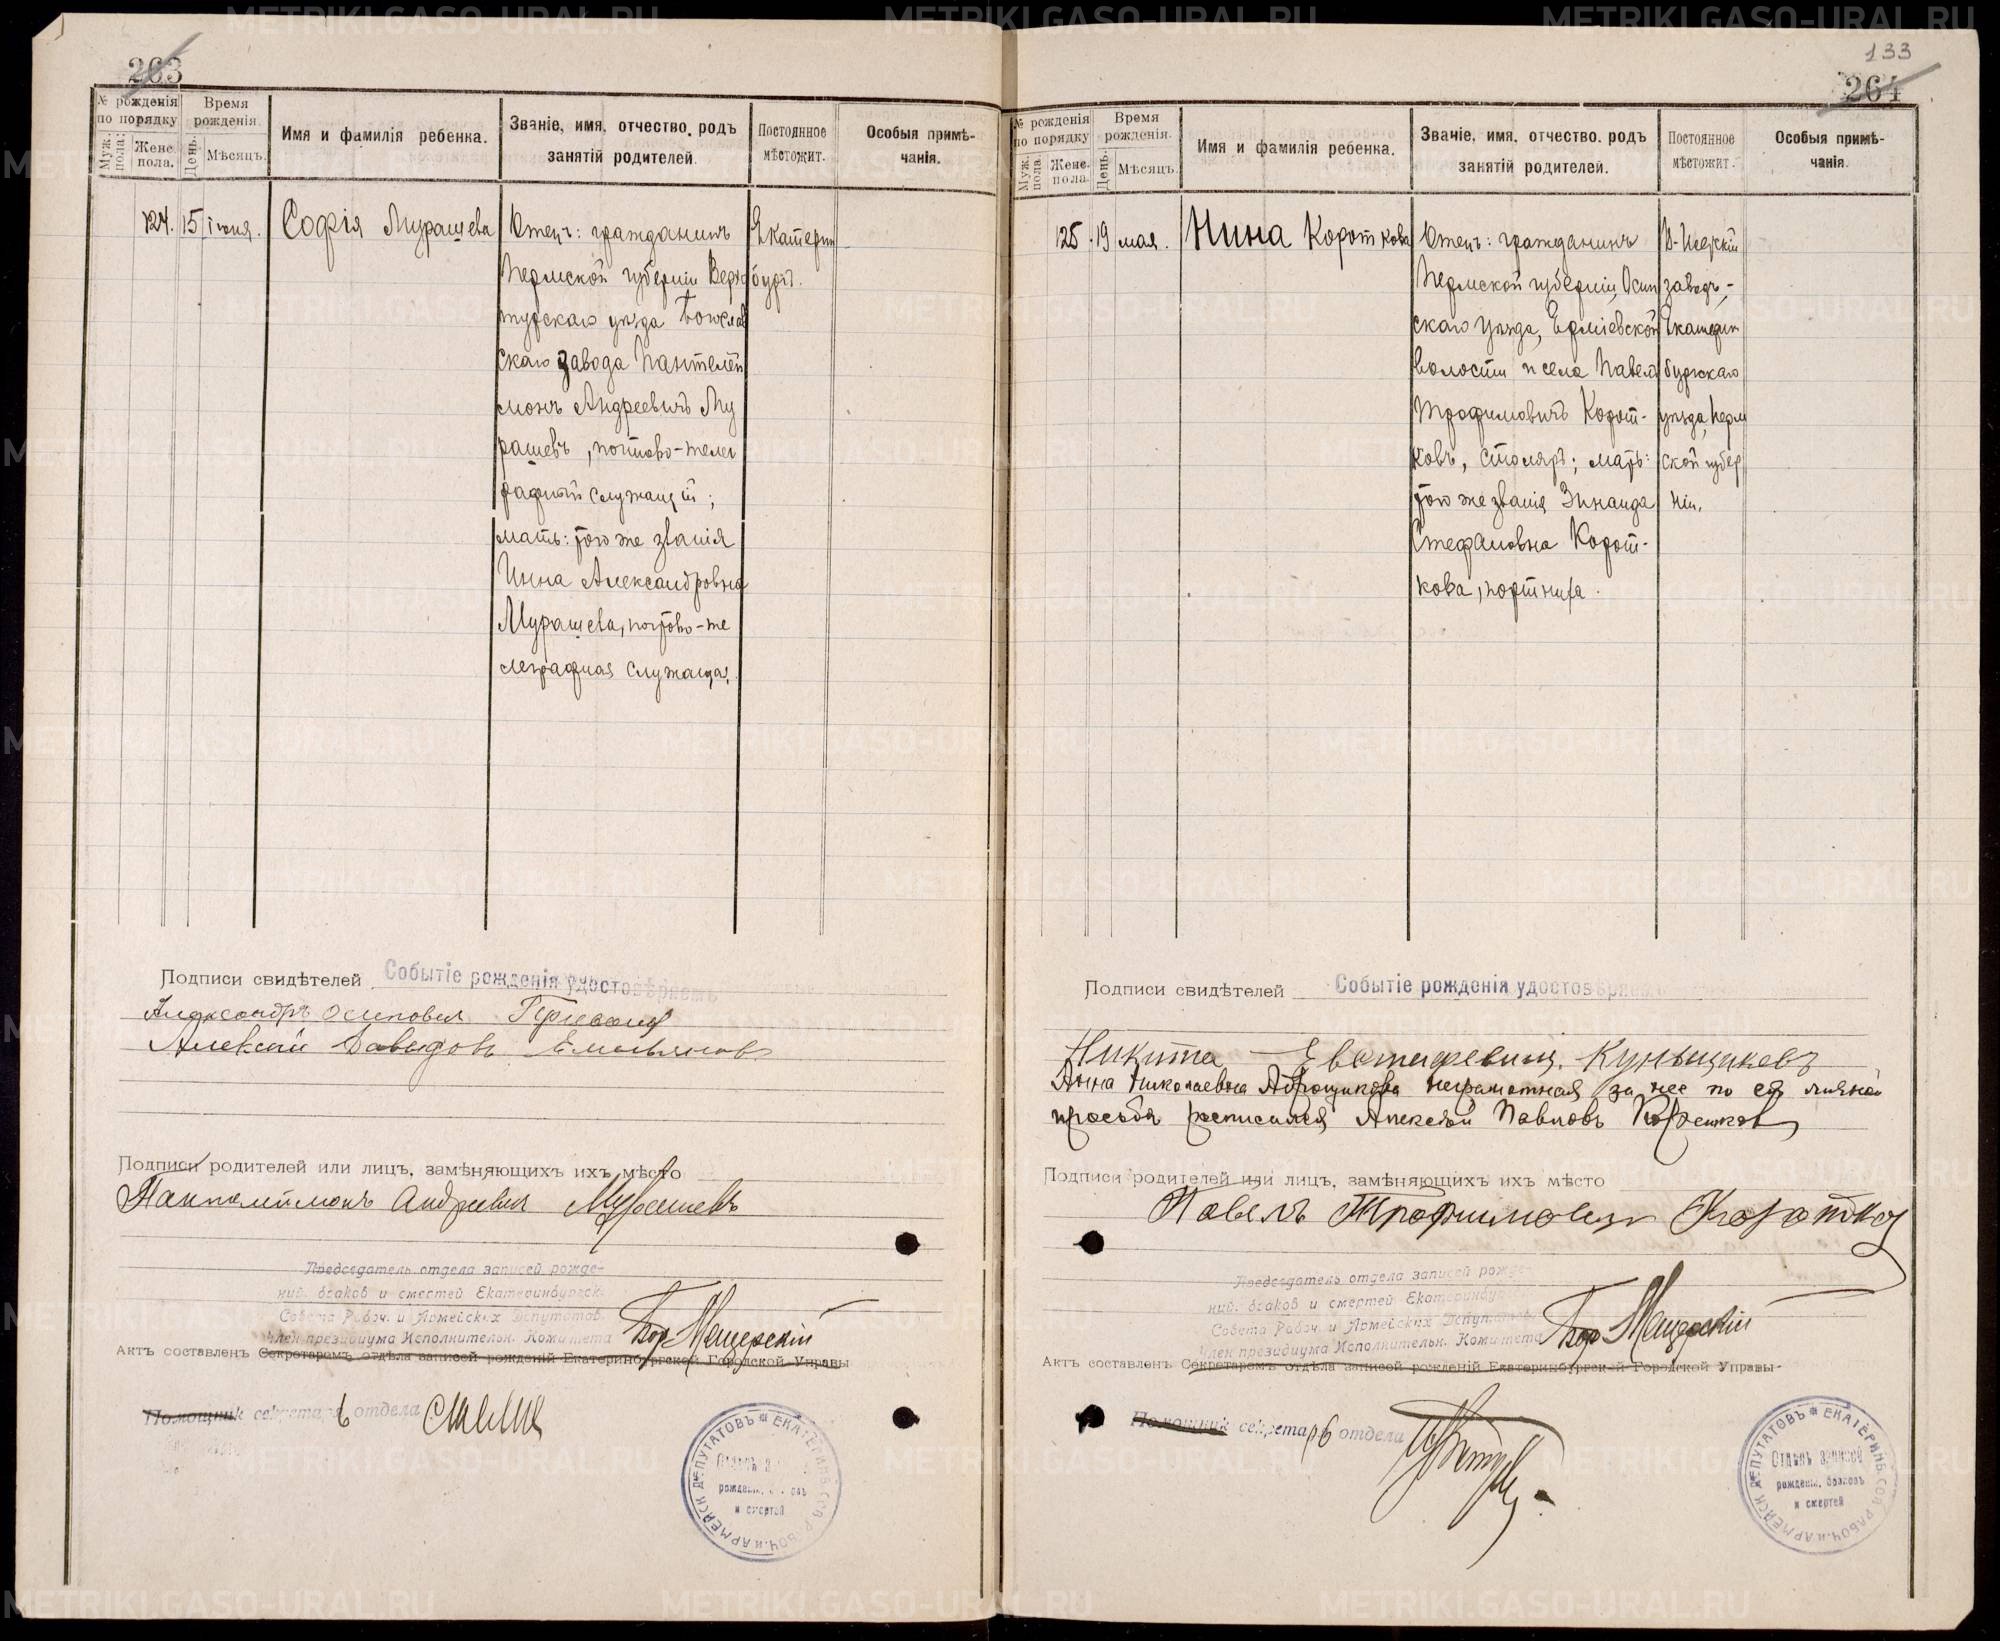 263
№ рожденія по порядку
Муж. пола.
Женс. пола.
Время рожденія.
День.
Мѣсяцъ.
Имя и фамилія ребенка.
Званіе, имя, отчество, родъ занятій родителей.
Постоянное мѣстожит.
Особыя примѣчанія.
124.
15
іюня.
Софія Мурашева
Отецъ: гражданинъ
Пермской губерніи Верхо
турскаго уѣзда
скаго завода Пантелей
монъ Андреевичъ Му
рашевъ, почтово-телег
рафный служащій;
мать: того же званія
Инна Александровна
Мурашева, почтово-те
леграфная служащая.
Екатерин
бургъ.
Подписи свидѣтелей
Событіе рожденія удостовѣряемъ
Александръ Осиповъ
Алексѣй Давыдовъ Емельяновъ
Подписи родителей или лицъ, замѣняющихъ ихъ мѣсто
Пантелеймонъ Андреевич Мурашевъ
Председатель отдела записей рожде-
ний, браков и смертей Екатеринбургск.
Совета Рабоч. и Армейских Депутатов.
Член президиума Исполнительн. Комитета
Мещерскій
Актъ составленъ Секретаремъ отдѣла записей рожденій Екатеринбургской Городской Управы
Помощник секретаря отдела
ЕКАТЕРИНБ. СОВ. РАБОЧ. И АРМЕЙСК. ДЕПУТАТОВЪ
рожденій, браковъ
и смертей
133
264
№ рожденія по порядку
Муж. пола
Женс. пола.
Время рожденія.
День.
Мѣсяцъ.
Имя и фамилія ребенка.
Званіе, имя, отчество, родъ занятій родителей.
Постоянное мѣстожит.
Особыя примѣчанія.
125
19
мая.
Нина Короткова
Отецъ: гражданинъ
Пермской губерніи, Осин
скаго уѣзда, Ерміевской
волости и села Павелъ
Трофимовичъ Корот-
ковъ, столяръ; мать:
того же званія Зинаида
Стефановна Корот-
кова, портниха.
В-Исетскій
заводъ,-
Екатерин
бургскаго
уѣзда, Перм
ской губер
ніи.
Подписи свидѣтелей
Событіе рожденія удостовѣряемъ
Никита Евстафевичъ
Анна Николаевна неграмотная за нее по ея личной
просьбѣ росписался Алексѣй Павловъ
Подписи родителей или лицъ, замѣняющихъ ихъ мѣсто
Павелъ Трофимовичъ Коротков
Председатель отдела записей рожде-
ний, браков и смертей Екатеринбургск.
Совета Рабоч. и Армейских Депутатов.
Член президиума Исполнительн. Комитета
Мещерскій
Актъ составленъ Секретаремъ отдѣла записей рожденій Екатеринбургской Городской Управы-
Помощник секретаря отдела
ЕКАТЕРИНБ. СОВ. РАБОЧ. И АРМЕЙСК. ДЕПУТАТОВЪ
Отдѣлъ записей
рожденій, браковъ
и смертей
METRIKI.GASO-URAL.RU